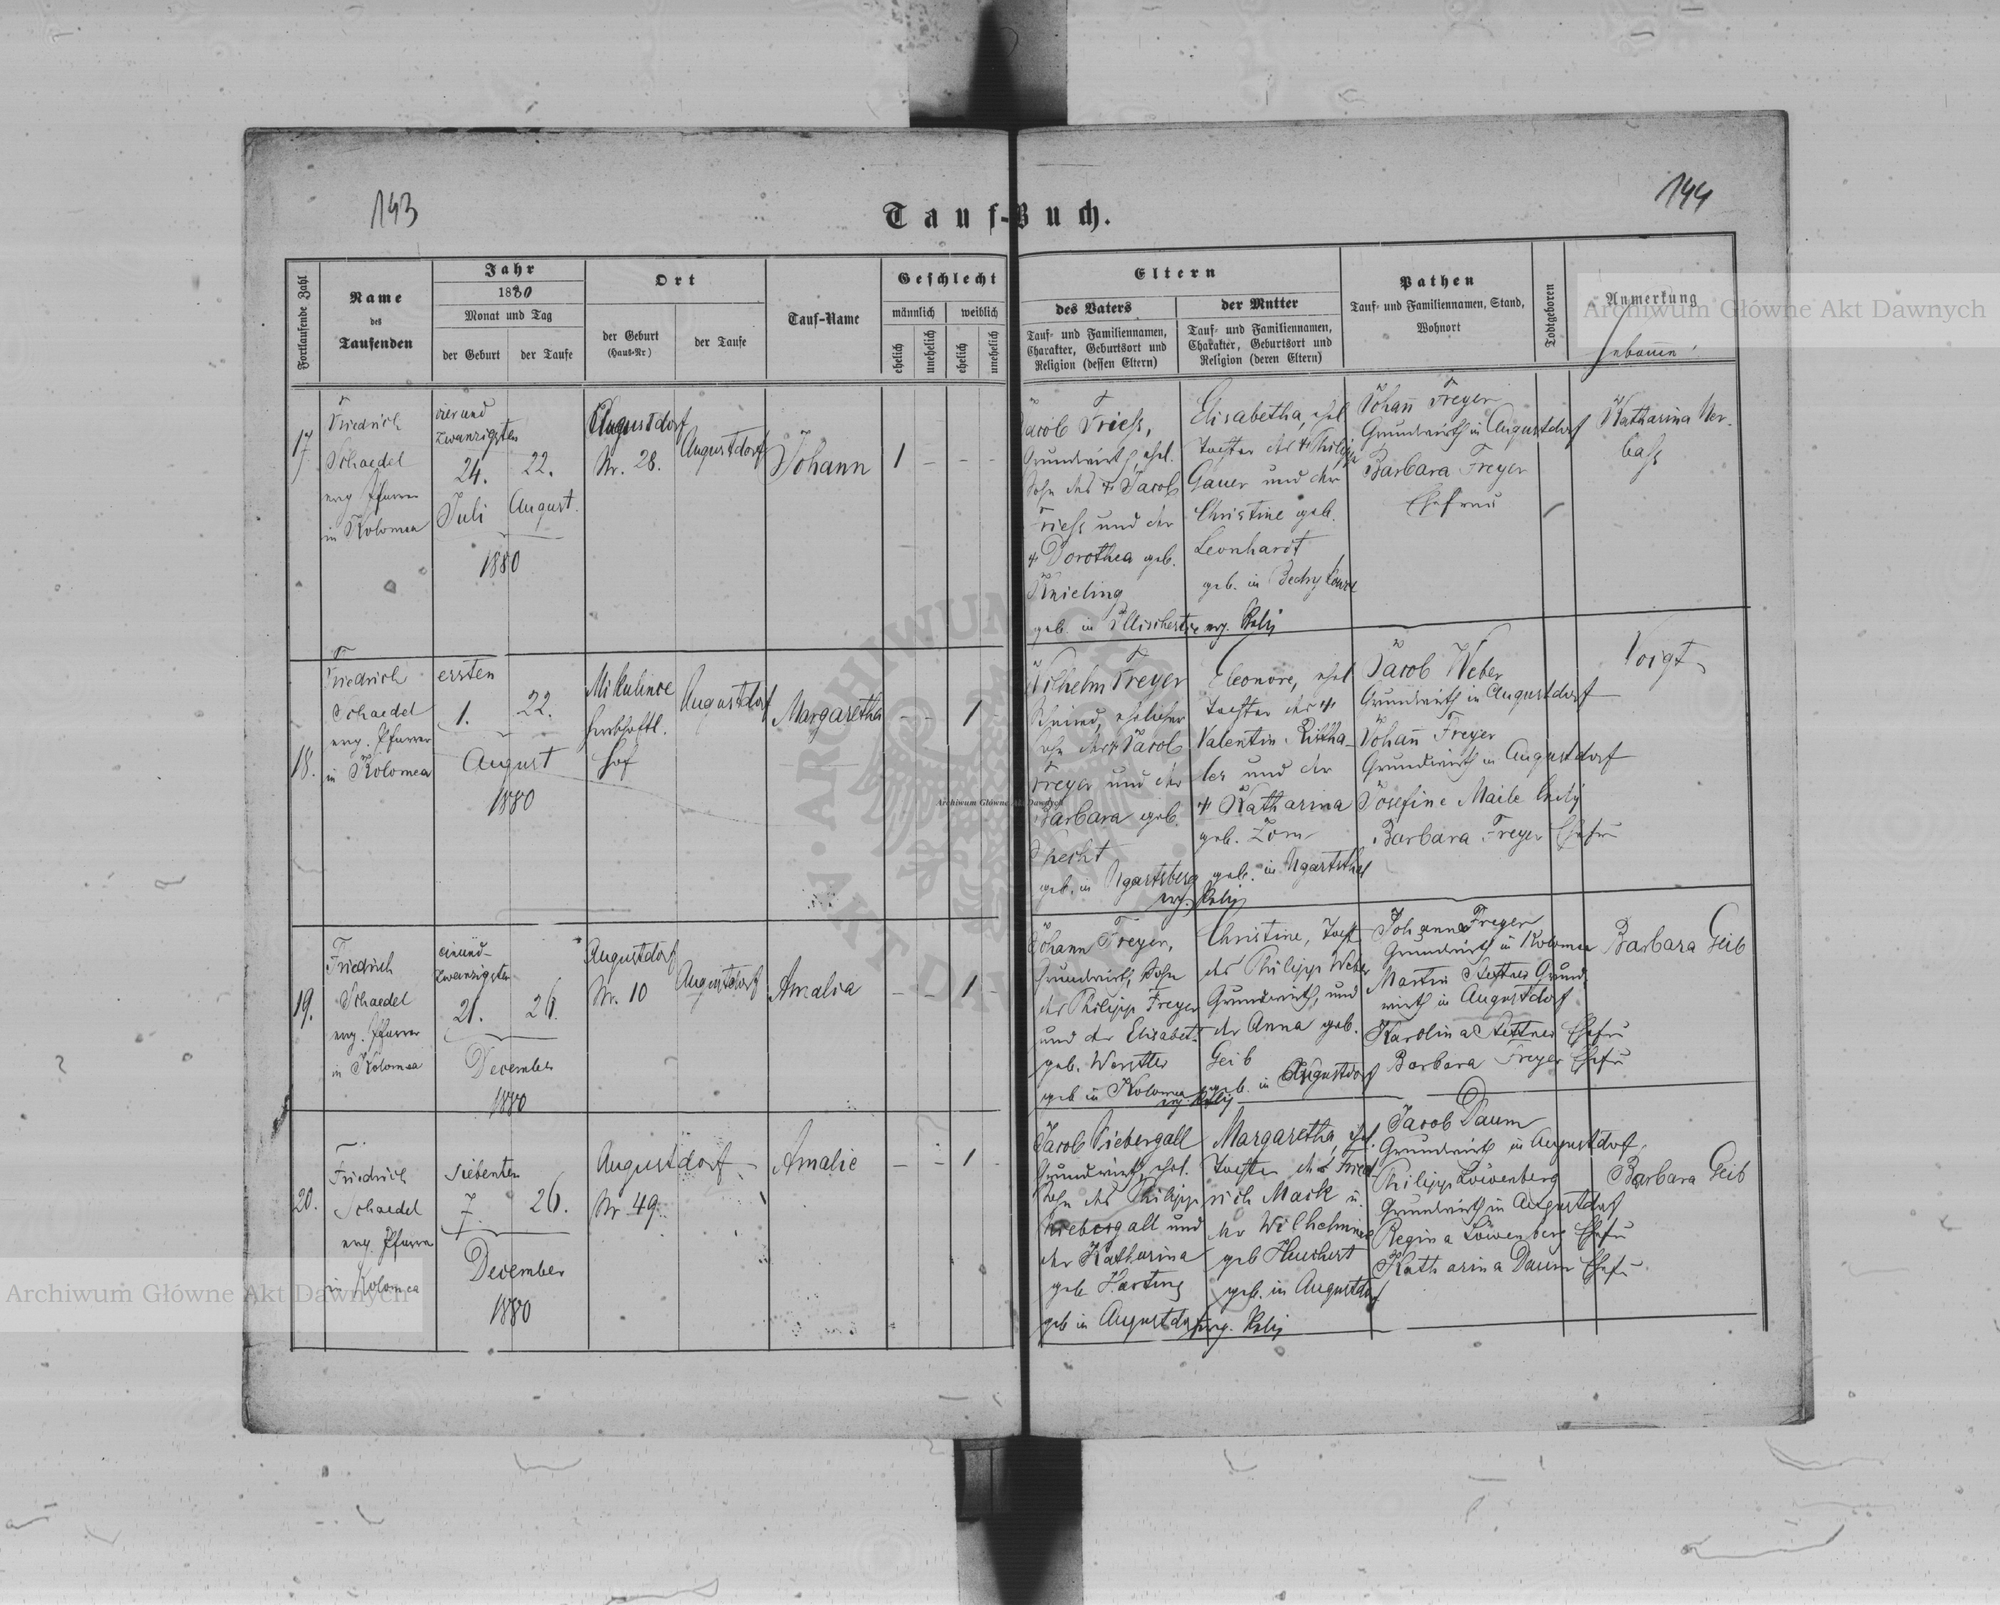 143
144
Tauf-Buch.
Fortlaufende Zahl
Name
des
Taufenden
Jahr
1880
Monat und Tag
der Geburt
der Taufe
Ort
der Geburt
(Haus-Nr)
der Taufe
Tauf-Name
Geschlecht
männlich
weiblich
ehelich
unehelich
ehelich
unehelich
Eltern
des Vaters
Tauf- und Familiennamen,
Charakter, Geburtsort und
Religion (dessen Eltern)
der Mutter
Tauf- und Familiennamen,
Charakter, Geburtsort und
Religion (deren Eltern)
Pathen
Tauf- und Familiennamen, Stand,
Wohnort
Todtgeboren
Anmerkung
17
Friedrich
Schaedel
evg. Pfarrer
in Kolomea
vier und
zwanzigsten
24.
Juli
22.
August.
1880
Augustdorf
Nr. 28.
Augustdorf
Johann
1 - - -
Jacob Friess,
Grundwirth, ehel.
Sohn des + Jacob
Friess und der
+ Dorothea geb.
Knieling
geb. in Illischestie evg. Relig
Elisabetha, ehel
Tochter des + Philipp
Gauer und der
Christine geb.
Leonhardt
geb. in
Johann Freyer
Grundwirth in Augustdorf
Barbara Freyer
Ehefrau
Katharina Ker-
bass
18.
Friedrich
Schaedel
evg. Pfarrer
in Kolomea
ersten
1.
22.
August
1880
Mikulince
herrschaftl.
Hof
Augustdorf
Margaretha
- - 1 -
Wilhelm Freyer
Schmied, ehelicher
Sohn des + Jacob
Freyer und der
Barbara geb.
Specht
geb. in Ugartsberg
evg. Relig
Eleonore, ehel
Tochter des +
Valentin
und der
+ Katharina
geb. Zorn
geb. in Ugartsthal
Jacob Weber
Grundwirth in Augustdorf
Johann Freyer
Grundwirth in Augustdorf
Josefine Maile ledig
Barbara Freyer Ehefr
Voigt
19.
Friedrich
Schaedel
evg. Pfarrer
in Kolomea
einund-
zwanzigsten
21.
26.
December
1880
Augustdorf
Nr. 10
Augustdorf
Amalia
- - 1 -
Johann Freyer,
Grundwirth, Sohn
des Philipp Freyer
und der Elisabet
geb.
geb in Kolomea
evg. Relig
Christine, Tocht
des Philipp Weber
Grundwirth, und
der Anna geb.
Geib
geb. in Augustdorf
Johann Freyer
Grundwirth in Kolomea
Martin Stettner Grund-
wirth in Augustdorf
Karolina Stettner Ehefr
Barbara Freyer Ehefr
Barbara Geib
20.
Friedrich
Schaedel
evg. Pfarrer
in Kolomea
siebenten
7.
26.
December
1880
Augustdorf
Nr 49.
Amalie
- - 1 -
Jacob Kiebergall
Grundwirth, ehel.
Sohn des Philipp
Kiebergall und
der Katharina
geb. Harting
geb in Augustdorf evg. Relig
Margaretha, ehel.
Tochter des Fried
rich Mack u
der Wilhelmine
geb Heuchert
geb. in Augustdorf
Jacob Daum
Grundwirth in Augustdorf
Philipp Löwenberg
Grundwirth in Augustdorf
Regina Löwenberg Ehefr
Katharina Daum Ehefr
Barbara Geib
Archiwum Główne Akt Dawnych
Archiwum Główne Akt Dawnych
Archiwum Główne Akt Dawnych